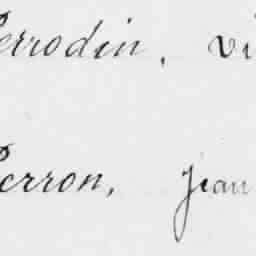 Perrodin, Vi
Perron, Jean